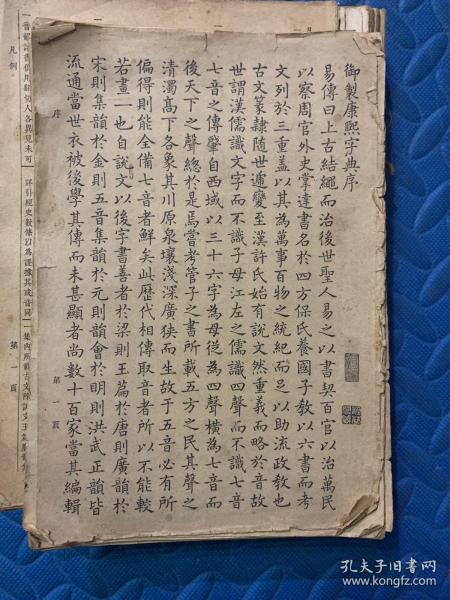 御製康熙字典序
易傳曰上古結繩而治後世聖人易之以書契百官以治萬民
以察周官外史掌達書名於四方保氏養國子教以六書而考
文列於三重蓋以其為萬事百物之統紀而足以助流政教也
古文篆隸隨世遞變至漢許氏始有說文然重義而略於音故
世謂漢儒識文字而不識子母江左之儒識四聲而不識七音
七音之傳肇自西域以三十六字為母從為四聲橫為七音而
後天下之聲總於是焉嘗考管子之書所載五方之民其聲之
清濁高下各象其川原泉壤淺深廣狹而生故于五音必有所
偏得則能全備七音者鮮矣此歷代相傳取音者所以不能較
若畫一也自說文以後字書善者於梁則玉篇於唐則廣韻於
宋則集韻於金則五音集韻於元則韻會於明則洪武正韻皆
流通當世衣被後學其傳而未甚顯者尚數十百家當其編輯
序
第一頁
凡例
第一頁
孔夫子旧书网
www.kongfz.com